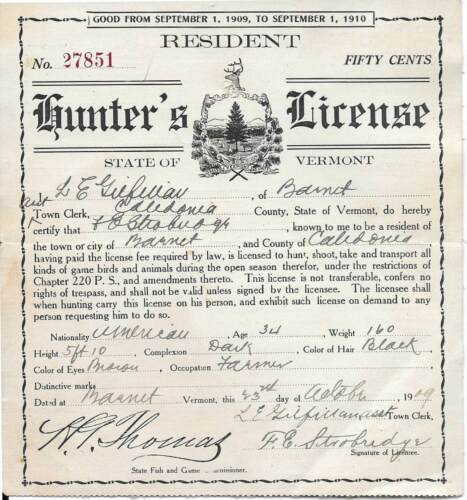 GOOD FROM SEPTEMBER 1, 1909, TO SEPTEMBER 1, 1910
RESIDENT
No. 27851 FIFTY CENTS
Hunter's License
STATE OF VERMONT
I, L E Gilfillan asst, of Barnet
Town Clerk, Caledonia County, State of Vermont, do hereby
certify that F E Strobridge, known to me to be a resident of
the town or city of Barnet, and County of Caledonia,
having paid the license fee required by law, is licensed to hunt, shoot, take and transport all
kinds of game birds and animals during the open season therefor, under the restrictions of
Chapter 220 P. S., and amendments thereto. This license is not transferable, confers no
rights of trespass, and shall not be valid unless signed by the licensee. The licensee shall
when hunting carry this license on his person, and exhibit such license on demand to any
person requesting him to do so.
Nationality American, Age 34, Weight 160
Height 5ft 10, Complexion Dark, Color of Hair Black
Color of Eyes Brown, Occupation Farmer
Distinctive marks
Dated at Barnet Vermont, this 23rd day of October, 1909
L E Gilfillan asst Town Clerk,
H. G. Thomas F. E. Strobridge
State Fish and Game Commissioner. Signature of Licensee.